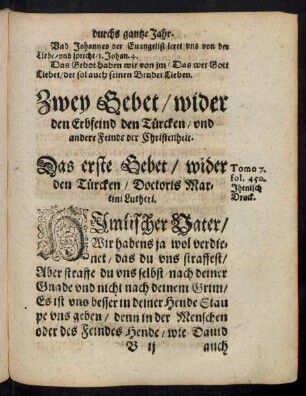 durchs gantze Jahr.
Vnd Johannes der Euangelist leret vns von der
Liebe/ vnd spricht/ 1. Johan. 4.
Das Gebot haben wir von jm/ Das wer Gott
Liebet/ der sol auch seinen Bruder Lieben.
Zwey Gebet/ wider
den Erbfeind den Türcken/ vnd
andere Feinde der Christenheit.
Das erste Gebet/ wider
den Türcken/ Doctoris Mar-
tini Lutheri.
Tomo 7.
fol. 450.
Jhenisch
Druck.
HImlischer Vater/
Wir habens ja wol verdie-
net/ das du vns straffest/
Aber straffe du vns selbst nach deiner
Gnade vnd nicht nach deinem Grim/
Es ist vns besser in deiner Hende Stau
pe vns geben/ denn in der Menschen
oder des Feindes Hende/ wie Dauid
V ij auch